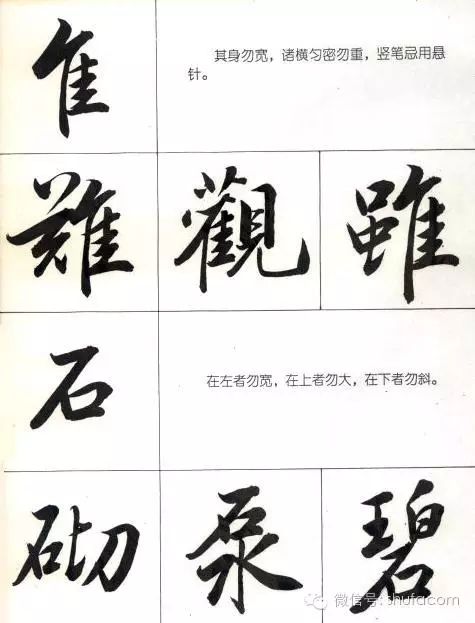 隹
其身勿宽，诸横匀密勿重，竖笔忌用悬
针。
難 觀 雖
石
在左者勿宽，在上者勿大，在下者勿斜。
砌 泵 碧
微信号: shufacom